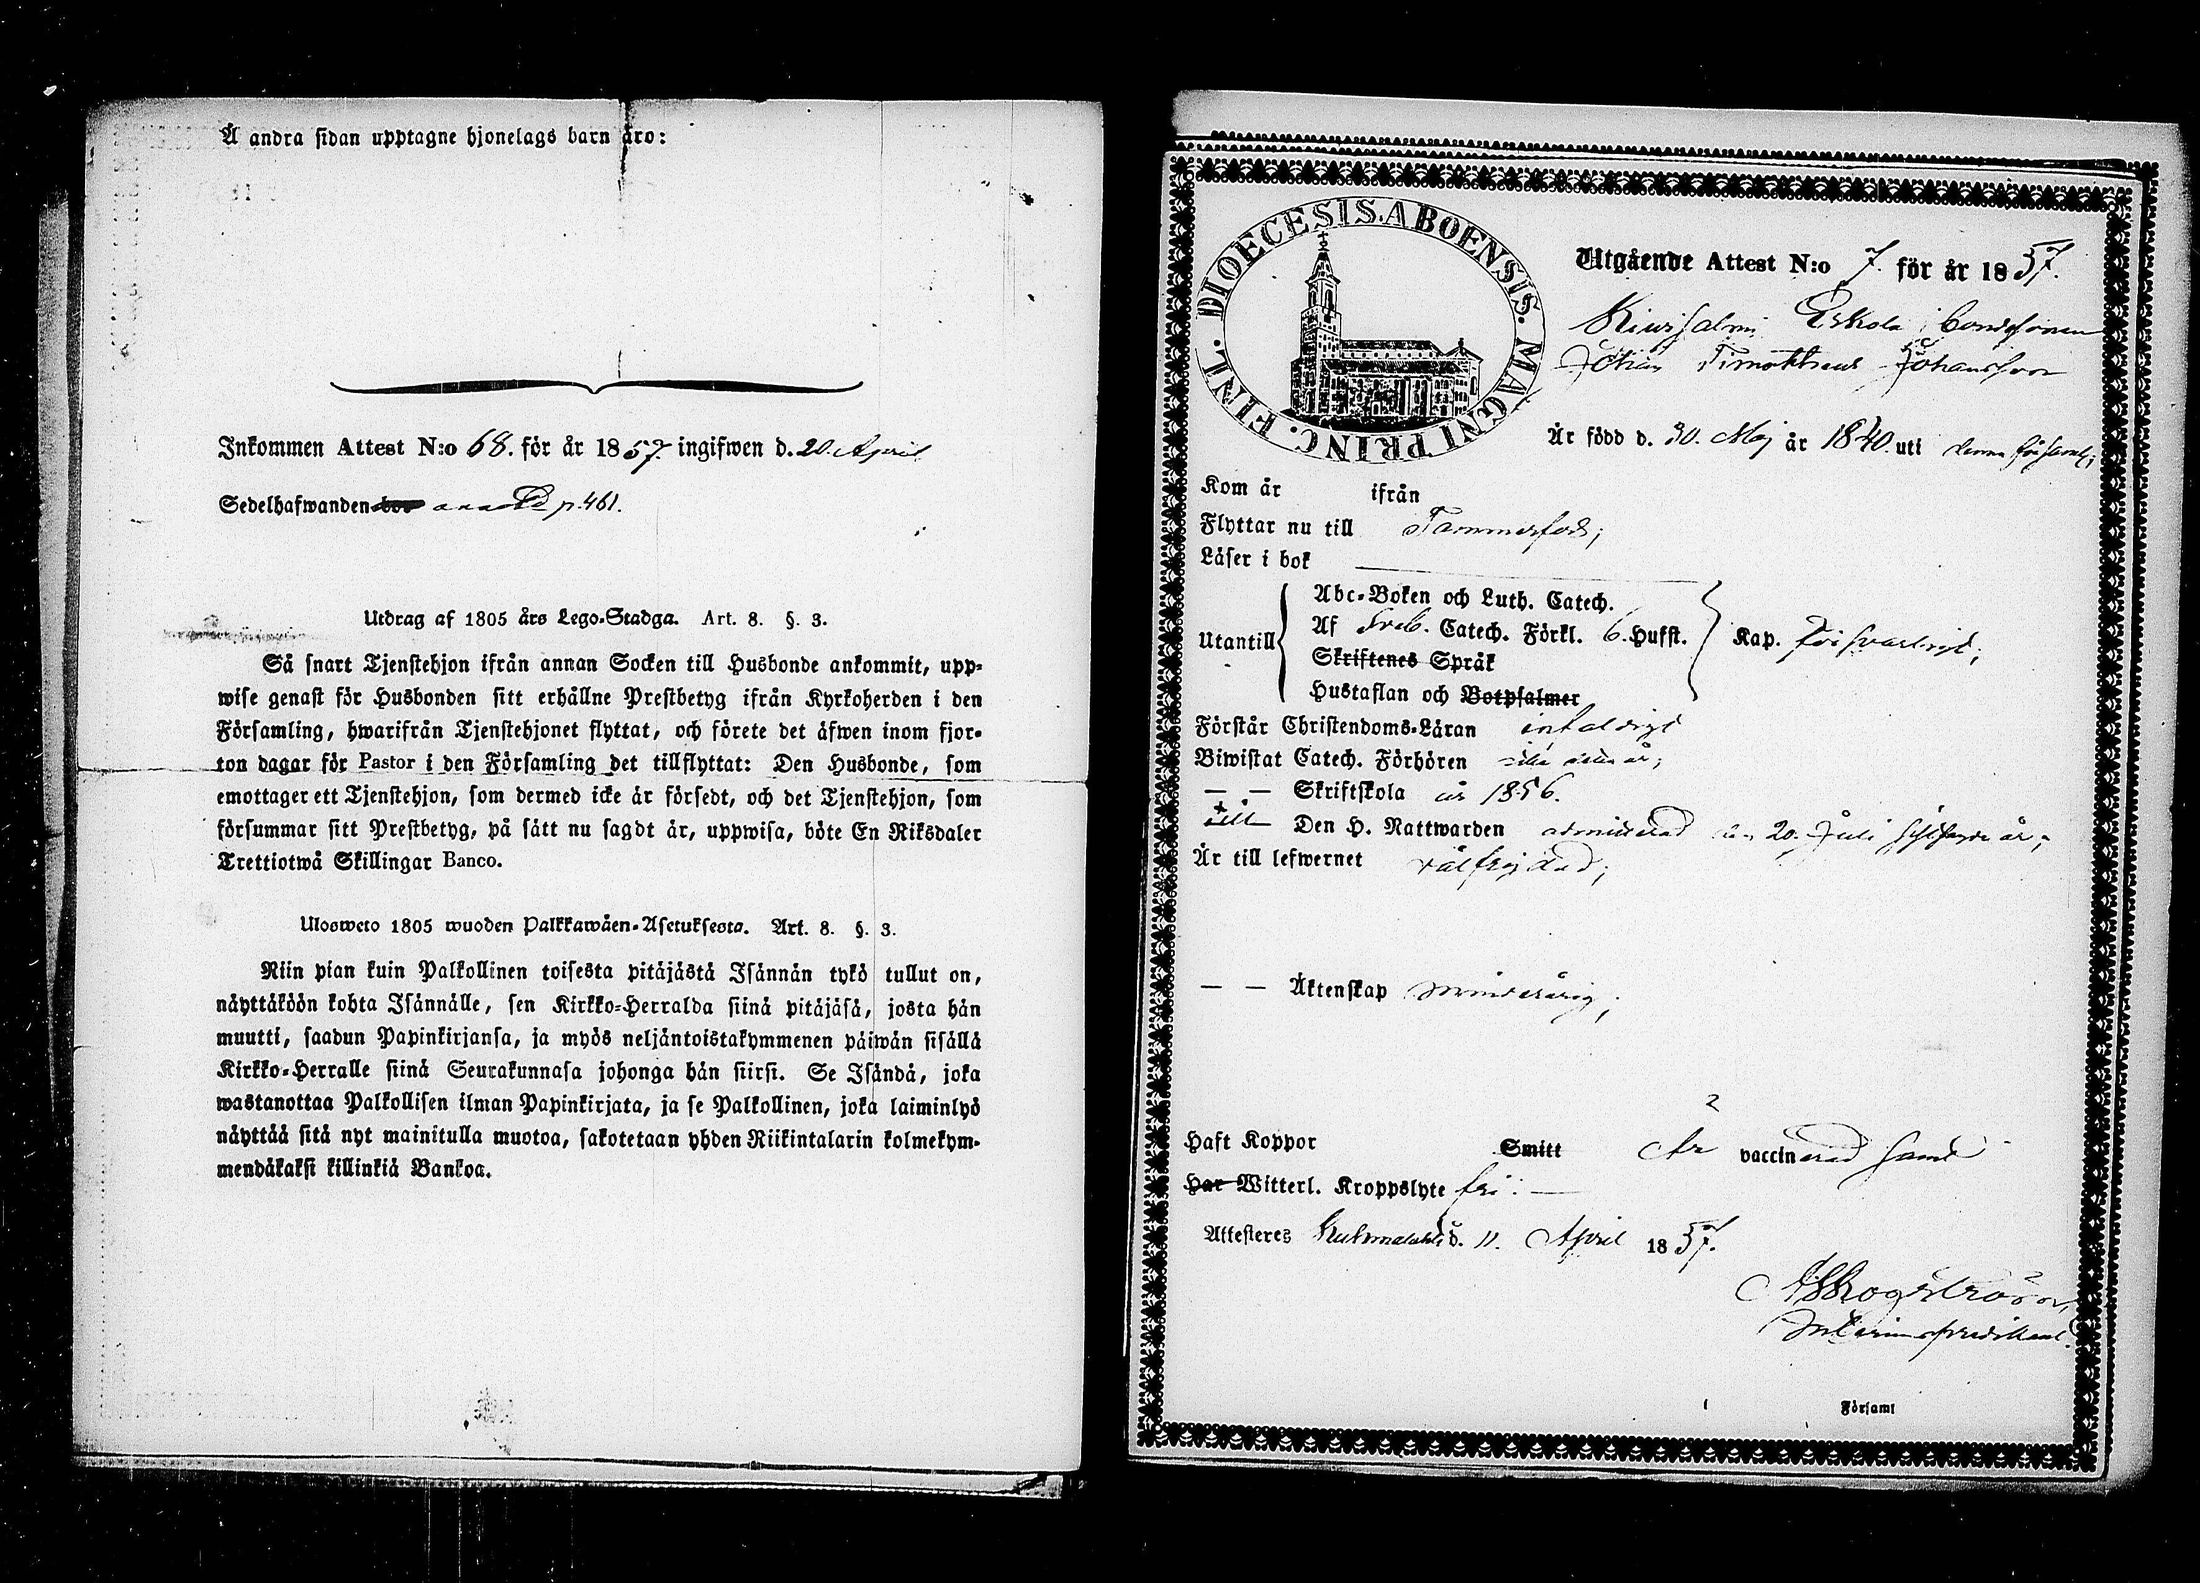 Å andra sidan upptagne hjonelags barn äro:
Inkommen Attest N:o 68. för år 1857 ingifwen d. 20. April
Sedelhafwanden p. 461.
Utdrag af 1805 års Lego-Stadga. Art. 8. §. 3.
Så snart Tjenstehjon ifrån annan Socken till Husbonde ankommit, upp-
wise genast för Husbonden sitt erhållne Prestbetyg ifrån Kyrkoherden i den
Församling, hwarifrån Tjenstehjonet flyttat, och förete det äfwen inom fjor-
ton dagar för Pastor i den Församling det tillflyttat: Den Husbonde, som
emottager ett Tjenstehjon, som dermed icke är försedt, och det Tjenstehjon, som
försummar sitt Prestbetyg, på sätt nu sagdt är, uppwisa, böte En Riksdaler
Trettiotwå Skillingar Banco.
Ulosweto 1805 wuoden Palkkawäen-Asetuksesta. Art. 8. §. 3.
Niin pian kuin Palkollinen toisesta pitäjästä Isännän tykö tullut on,
näyttäköön kohta Isännälle, sen Kirkko-Herralda siinä pitäjäsä, josta hän
muutti, saadun Papinkirjansa, ja myös neljäntoistakymmenen päiwän sisällä
Kirkko-Herralle siinä Seurakunnasa johonga hän siirsi. Se Isändä, joka
wastanottaa Palkollisen ilman Papinkirjata, ja se Palkollinen, joka laiminlyö
näyttää sitä nyt mainitulla muotoa, sakotetaan yhden Riikintalarin kolmekym-
mendäkaksi killinkiä Bankoa.
DIOECESIS. ABOENSIS. MAGNI PRINC. FINL.
Utgående Attest N:o 7. för år 1857.
Kiwisalmi Eskola bondsonen
Johan Timottheus Johansson
Är född d. 30. Maj år 1840. uti denna församl;
Kom år ifrån
Flyttar nu till Tammerfors;
Läser i bok
Utantill
Abc-Boken och Luth. Catech.
Af Sveb. Catech. Förkl. 6. Hufst.
Skriftenes Språk
Hustaflan och Botpsalmer
Kap. försvarligt;
Förstår Christendoms-Läran enfaldigt
Biwistat Catech. Förhören
— — Skriftskola år 1856.
till Den H. Nattwarden admitterad den 20. Juli sistl. år;
Är till lefwernet välfrejdad;
— — Äktenskap minderårig;
2
Haft Koppor Smitt Är vaccinerad samt
Har Witterl. Kroppslyte fri. —
Attesteres Kuhmalahti d. 11. April 1857.
A Skogström,
Interimspredikant.
Församl